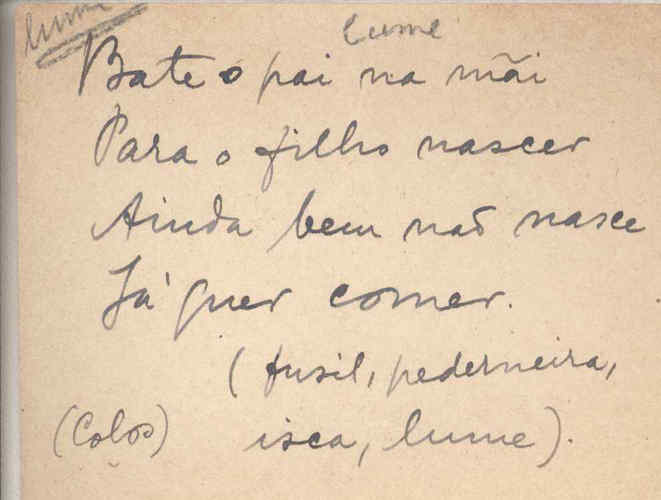 lume
lume
Bate o pai na mãi
Para o filho nascer
Ainda bem não nasce
Já quer comer.
(fusil, pederneira,
(Colos) isca, lume).